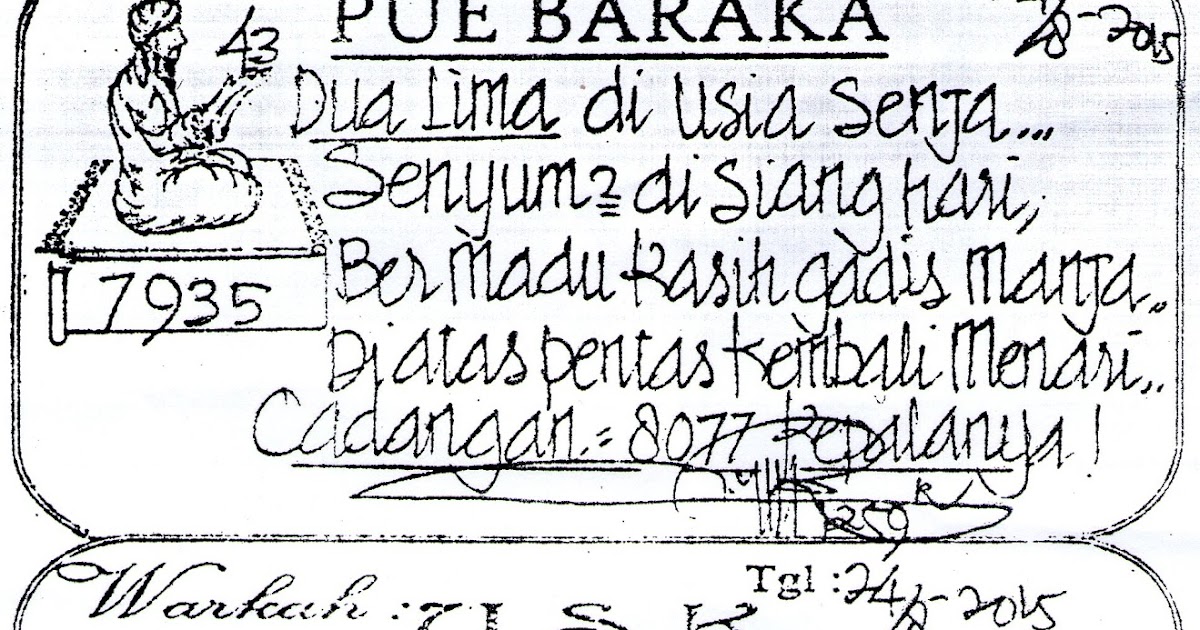 PUE BARAKA
43
2015
Dua Lima di Usia Senja...
Senyum2 di Siang hari,
Ber Madu Kasih gadis Manja..
7935
Di atas pentas Kembali Menari,..
Cadangan = 8077 Kepalanya!
Warkah :
Tgl : 24/8-2015